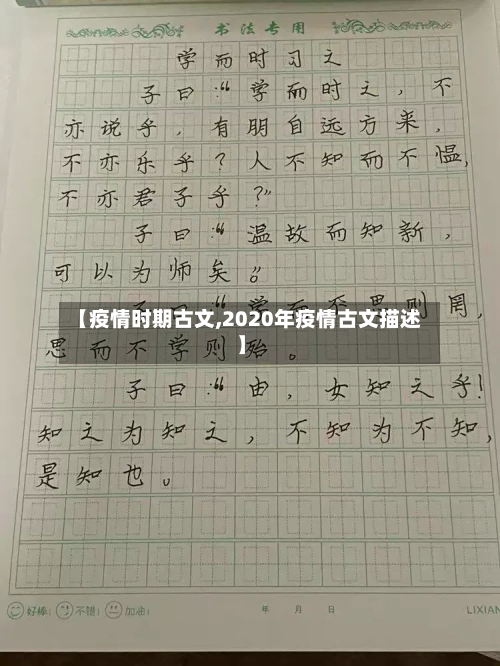 书法专用
学而时习之
子曰:“学而时之,不
亦说乎,有朋自远方来,
不亦乐乎?人不知而不愠,
不亦君子乎?”
子曰:“温故而知新,
可以为师矣。”
【疫情时期古文,2020年疫情古文描述
】
子曰:“学而不思则罔,
思而不学则殆。
子曰:“由,女知之乎!
知之为知之,不知为不知,
是知也。
好棒! 不错! 加油! 年 月 日 LIXIAN